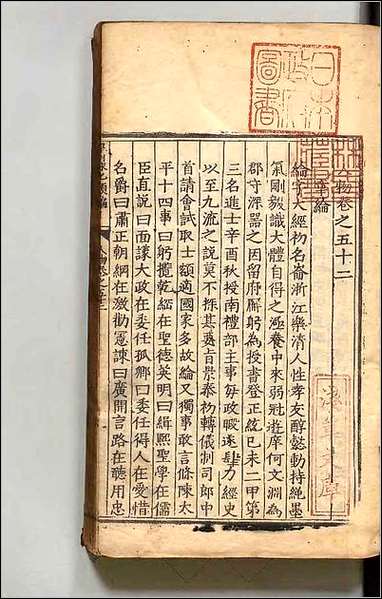 日本
政府
圖書
人物卷之五十二
章綸
綸字大經初名崙浙江樂清人性孝友醇愨動持繩墨
氣剛毅識大體自得之涵養中來弱冠遊庠何文淵為
郡守深器之因留府廨躬為授書登正統己未二甲第
三名進士辛酉秋授南禮部主事每政暇遂肆力經史
以至九流之說莫不探其邃旨景泰初轉儀制司郎中
首請會試取士額適國家多故綸又獨事敢言條陳太
平十四事曰躬攬乾綱在聖德英明曰緝熙聖學在儒
臣直說曰面議大政在委任孤卿曰委任得人在愛惜
名爵曰肅正朝綱在激勸憲諫曰廣開言路在聽用忠
淺草文庫